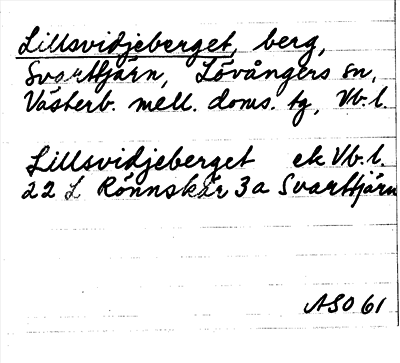 Lillsvidjeberget, berg,
Svarttjärn, Lövångers sn,
Västerb. mell. doms. tg, Vb. l.
Lillsvidjeberget ek Vb. l.
22 L Rönnskär 3a Svarttjärn
ASO 61